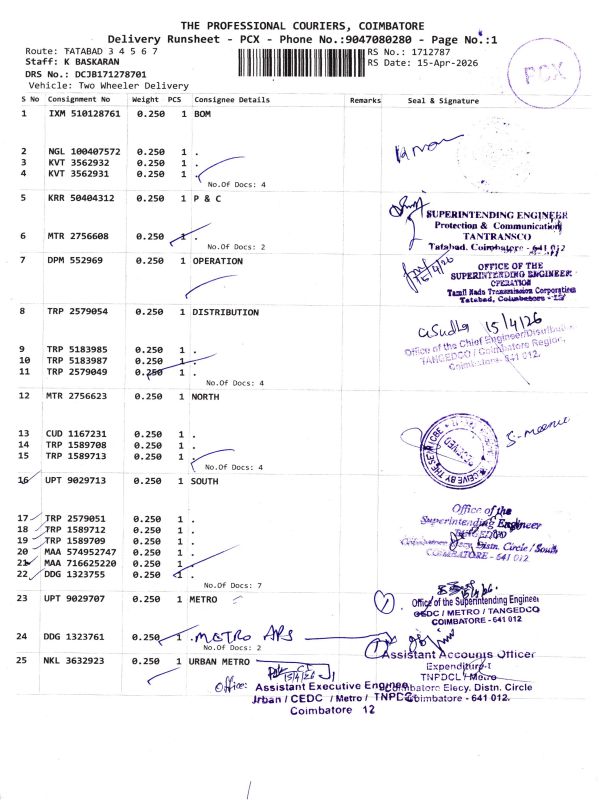 THE PROFESSIONAL COURIERS, COIMBATORE
Delivery Runsheet - PCX - Phone No.:9047080280 - Page No.:1
Route: TATABAD 3 4 5 6 7
RS No.: 1712787
Staff: K BASKARAN
RS Date: 15-Apr-2026
DRS No.: DCJB171278701
Vehicle: Two Wheeler Delivery
PCX
S No Consignment No Weight PCS Consignee Details Remarks Seal & Signature
1 IXM 510128761 0.250 1 BOM
2 NGL 100407572 0.250 1 .
3 KVT 3562932 0.250 1 .
4 KVT 3562931 0.250 1 .
No.Of Docs: 4
5 KRR 50404312 0.250 1 P & C
SUPERINTENDING ENGINEER
Protection & Communication
TANTRANSCO
Tatabad, Coimbatore - 641 012
6 MTR 2756608 0.250 1 .
No.Of Docs: 2
7 DPM 552969 0.250 1 OPERATION
15/4/26
OFFICE OF THE
SUPERINTENDING ENGINEER
OPERATION
Tamil Nadu Transmission Corporation
Tatabad, Coimbatore - 12
8 TRP 2579054 0.250 1 DISTRIBUTION
15/4/26
Office of the Chief Engineer/Distribution
TANGEDCO / Coimbatore Region,
Coimbatore- 641 012.
9 TRP 5183985 0.250 1 .
10 TRP 5183987 0.250 1 .
11 TRP 2579049 0.250 1 .
No.Of Docs: 4
12 MTR 2756623 0.250 1 NORTH
S. Meenu
RECEIVED
13 CUD 1167231 0.250 1 .
14 TRP 1589708 0.250 1 .
15 TRP 1589713 0.250 1 .
No.Of Docs: 4
16 UPT 9029713 0.250 1 SOUTH
Office of the
Superintending Engineer
TANGEDCO
Coimbatore Elecy. Distn. Circle / South
COIMBATORE - 641 012.
17 TRP 2579051 0.250 1 .
18 TRP 1589712 0.250 1 .
19 TRP 1589709 0.250 1 .
20 MAA 574952747 0.250 1 .
21 MAA 716625220 0.250 1 .
22 DDG 1323755 0.250 1 .
No.Of Docs: 7
23 UPT 9029707 0.250 1 METRO
15/4/26
Office of the Superintending Engineer
CEDC / METRO / TANGEDCO
COIMBATORE - 641 012
24 DDG 1323761 0.250 1 . METRO APS
No.Of Docs: 2
Assistant Accounts Officer
Expenditure-I
TNPDCL / Metro
Coimbatore Elecy. Distn. Circle
Coimbatore - 641 012.
25 NKL 3632923 0.250 1 URBAN METRO
15/4/26
Office:
Assistant Executive Engineer
Urban / CEDC / Metro / TNPDCL
Coimbatore 12